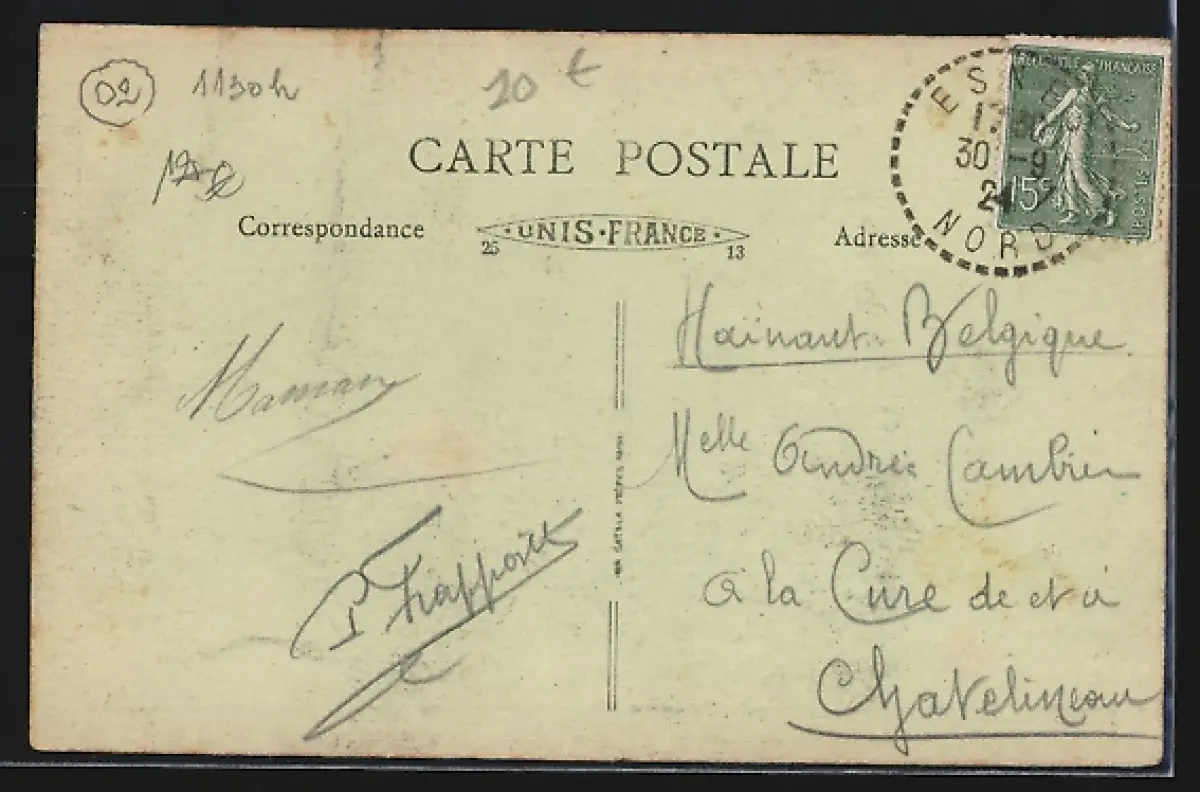 02 1130h 20 €
CARTE POSTALE
Correspondance
25 UNIS-FRANCE 13
Adresse
NORD
30 -9
24
REPUBLIQUE FRANÇAISE
15c
POSTES
Hainaut. Belgique
Melle Andrée Cambier
à la Cure de et à
Chatelineau
Maman